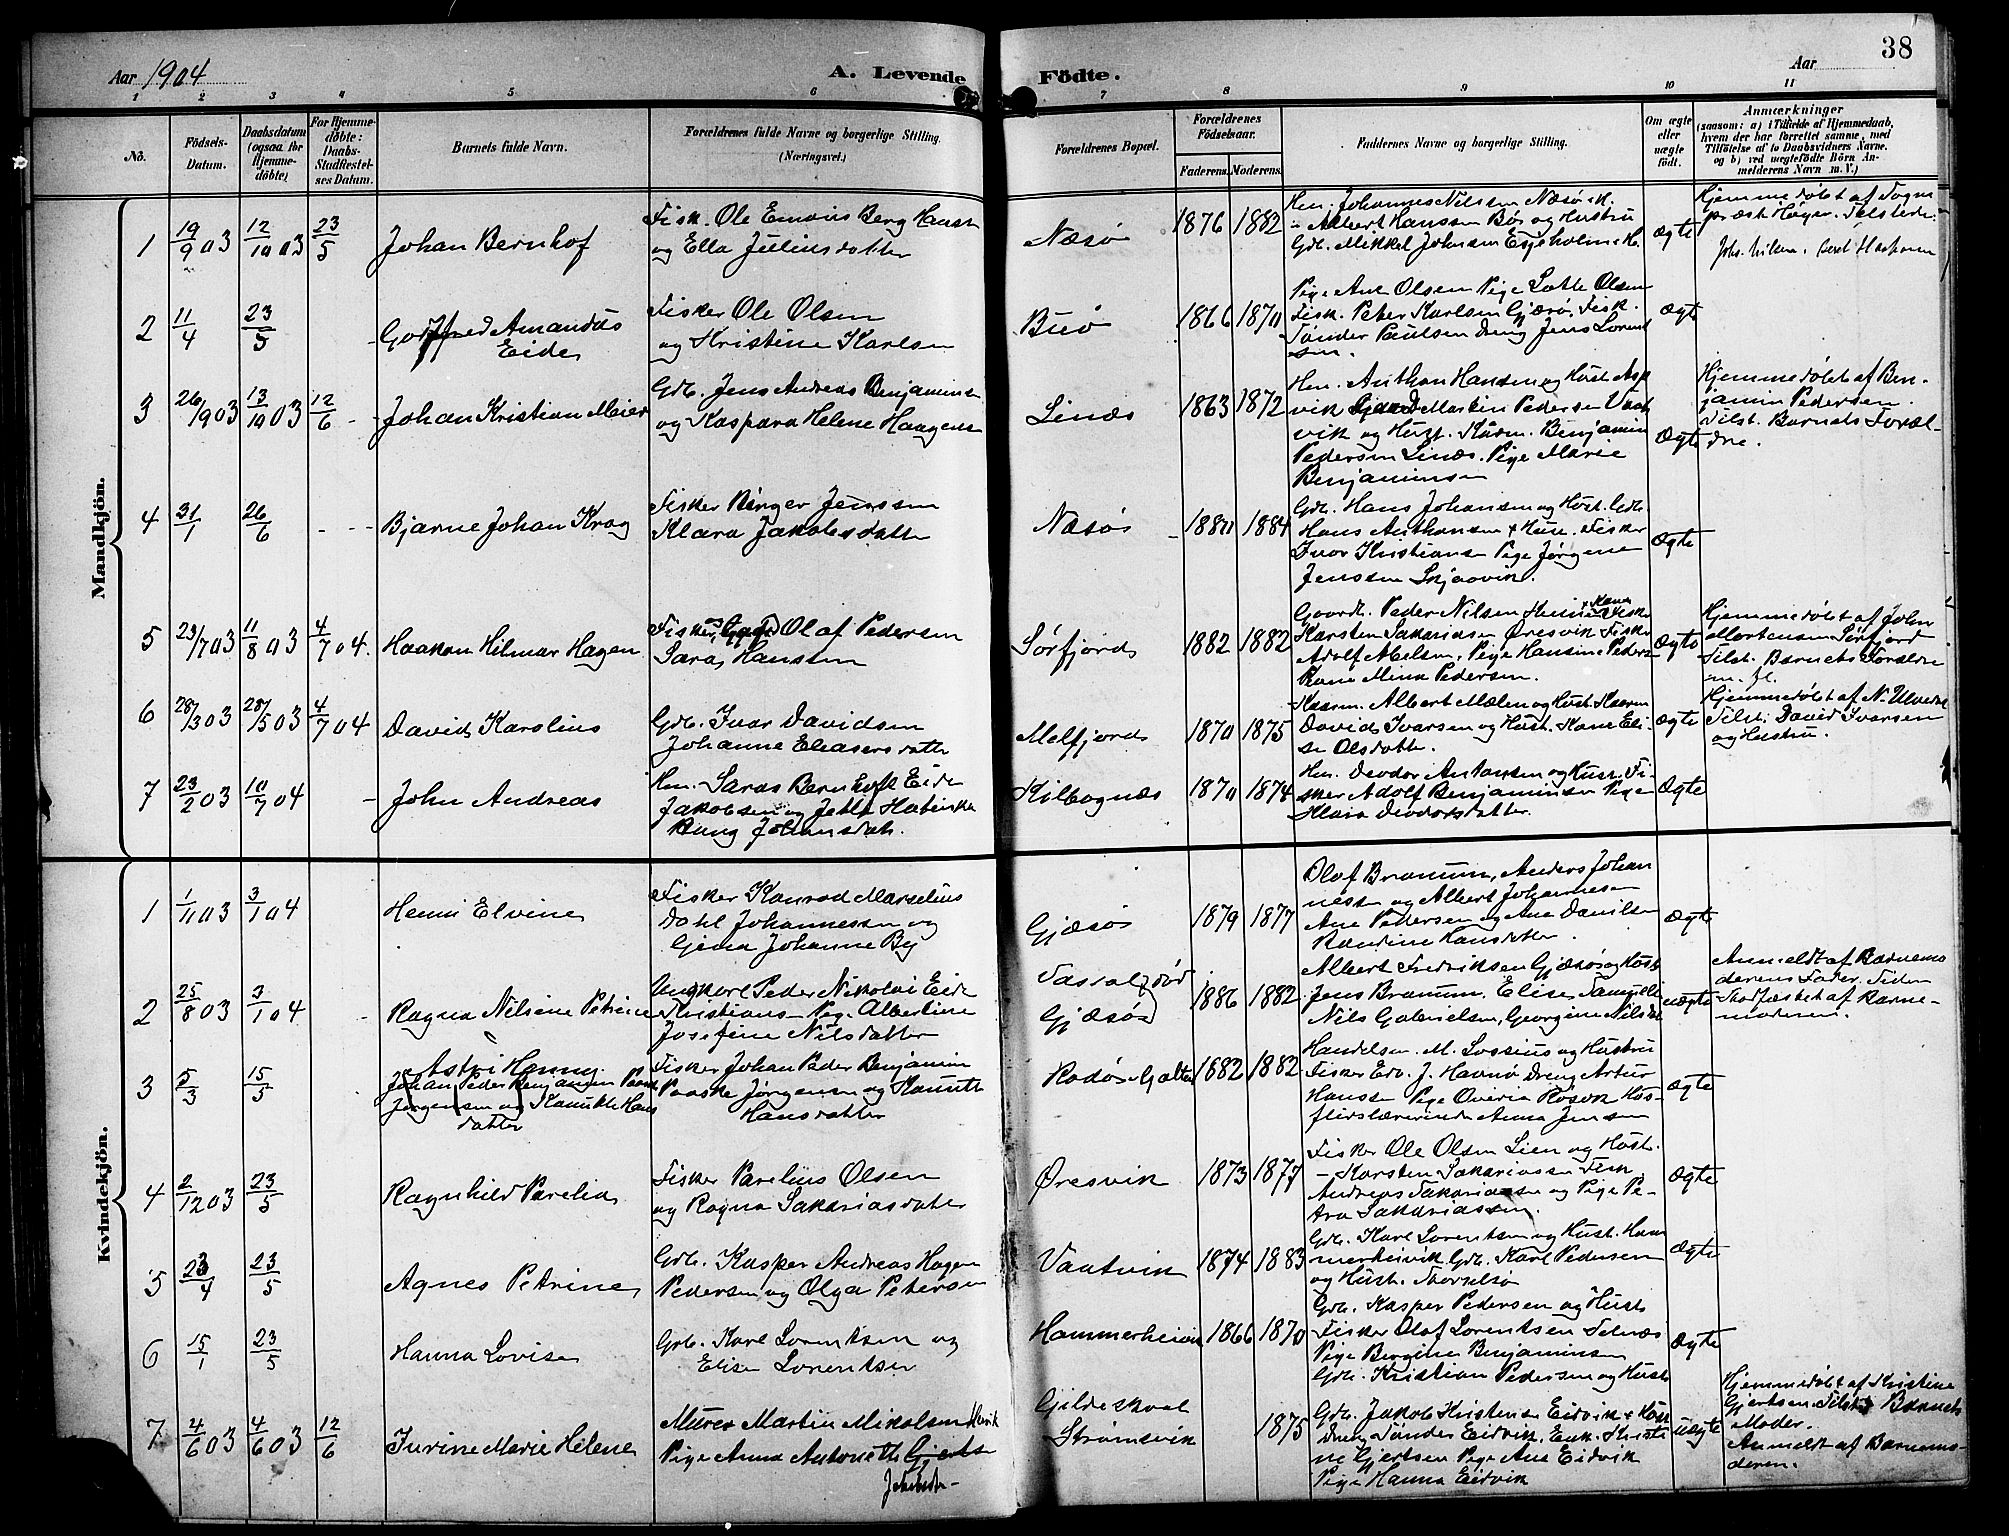 38
Aar 1904
A. Levende
Födte.
Aar
1 2 3 4 5 6 7 8 9 10 11
No.
Födsels-
Datum.
Daabsdatum
(ogsaa for
Hjemme-
døbte)
For Hjemme-
døbte:
Daabs-
Stadfæstel-
ses Datum.
Barnets fulde Navn.
Forældrenes fulde Navne og borgerlige Stilling.
(Næringsvei.)
Forældrenes Bopæl.
Forældrenes
Fødselsaar.
Faderens. Moderens.
Faddernes Navne og borgerlige Stilling.
Om ægte
eller
uægte
født.
Anmærkninger
(saasom: a) i Tilfælde af Hjemmedaab,
hvem der har forrettet samme, med
Tilføielse af to Daabsvidners Navne,
og b) ved uægtefødte Børn An-
melderens Navn m. V.)
Mandkjön.
1 19/9 03 12/10 03 23/5
Johan Bernhof
Fisk. Ole Emaus Berg Hansen
og Ella Juliusdatter
Næsø
1876 1882
Hm. Johannes Nilssen Næsø
Albert Hanssen Bø og Hustru
Gdb. Mikkel Johnsen Esjeholm
Ægte
Hjemmedøbt af Sogne
præst Høyer. Tilstede:
2 11/4 23/5
Gotfred Amandus
Eide
Fisker Ole Olsen
og Kristine Karlsen
Buø
1866 1870
Pige Ane Olsen Pige Lotte Olsen
Fisk. Peter Karlsen Gjærø, Fisk.
Tønder Paulsen Dreng Jens Lorent
sen.
Ægt
3 26/9 03 13/10 03 12/6
Johan Kristian Meier
Gdb. Jens Andreas Benjamins
og Kaspara Helene Haagens
Linæs
1863 1872
Hm. Anthon Hansen og Hust. Asp
vik Martin Pedersen Vaat
vik og Hust. Benjamin
Pedersen Linæs. Pige Marie
Benjaminsen
Ægte
Hjemmedøbt af Ben-
jamin Pedersen.
Tilst. Barnets Foræl-
dre.
4 31/1 26/6
Bjarne Johan Krog
Fisker Birger Jenssen
Klara Jakobsdatter
Næsø
1880 1884
Gdb. Hans Johansen og Hust. Gdb.
Hans Anthonsen Fisker
Ivar Kristiansen Pige Jørgine
Jenssen Skjaavik.
Ægte
5 23/7 03 11/8 03 4/7 04.
Haakon Hilmar Hagen
Fisker Olaf Pedersen
Sara Hanssen
Sørfjord
1882 1882
Gaardb. Peder Nilsen
Karsten Sakariasen Øresvik Fisker
Adolf Pige Hansine Peders
Kone Mina Pedersen.
Ægte
Hjemmedøbt af John
Mortensen Sørfjord
Tilst. Barnets Forældre
6 28/3 03 28/5 03 4/7 04
David Karolius
Gdb. Ivar Davidsen
Johanne Eleasersdatter
Melfjord
1870 1875
Kaarm. Albert Mælen og Hust. Kaarm.
David Ivarsen og Hust. Kone Eli-
se Olsdatter.
Ægte
Hjemmedøbt af N.
Tilst: David Ivarsen
og Hustru.
7 23/2 03 10/7 04
John Andreas
Hm. Saras Bernhoft Eide
Jakobsen og Jette
Bang Johansdatt.
Kilbognæs
1870 1874
Hm. Deodor Antonsen og Hust. Fi-
sker Adolf Benjaminsen Pige
Klara Deodorsdatter.
Ægte
Kvindekjön.
1 1/11 03 3/1 04
Henni Elvine
Fisker Konrad Marselius
Dahl Johannessen og
Gjena Johanne By
Gjæsø
1879 1877
Olaf Bramum, Anders Johan
nessen og Albert Johannesen
Ane Pedersen og Ane Danilsen
Randine Hansdatter.
Ægte
2 25/8 03 3/1 04
Ragna Nilsine Petrine
Ungkarl Peder Nikolai Eide
Kristians. Pige Albertine
Josefine Nilsdatter
Gjæsø
1886 1882
Albert Fredriksen Gjæsø og Hust.
Jens Bramum. Elise
Nils Gabrielsen, Georgine Nilsdt
uægte
Anmeldt af Barnemo
derens Fader. Siden
Stadfæstet af Barne-
moderen.
3 5/3 15/5
Astri Hanny
Johan Peder Benjamin Paaske
Jørgensen og Kanutte Hans
datter
Fisker Johan Peder Benjamin
Paaske Jørgensen og Kanutte
Hansdatter
Rodø Gjelten
1882 1882
Handelsm. M. Lossius og Hustru
Fisker Edv. J. Havnø Dreng Artur
Hanssen Pige Overia Rosok Hus-
flidslærerinde Anna Jensen
Ægte
4 2/12 03 23/5
Ragnhild Parelia
Fisker Parelius Olsen
og Ragna Sakariasdatter
Øresvik
1873 1877
Fisker Ole Olsen Lien og Hust.
- Karsten Sakariassen Fisk.
Andreas Sakariassen og Pige Pe-
tra Sakariassen.
Ægte
5 23/4 23/5
Agnes Petrine
Gdb. Kasper Andreas Hagen
Pedersen og Olga Petersen
Vaatvik
1874 1883
Gdb. Karl Lorentsen og Hust. Ham
merheivik. Gdb. Karl Pedersen
og Hust. Storselsø
Ægte
6 15/1 23/5
Hanna Lovise
Gdb. Karl Lorentsen og
Elise Lorentsen
Hammerheivik
1866 1870
Gdb. Kasper Pedersen og Hust.
Fisker Olaf Lorentsen Selnæs
Pige Bergine Benjaminsen
Gdb. Kristian Pedersen og Hust.
Ægte
7 4/6 03 4/6 03 12/6
Jurine Marie Helene
Murer Martin Mikalsen
Pige Anna Antonette Gjerts
Gildeskaal
Strømsvik
1875
Gdb. Jakob Kristensen Eidvik + Hust
Dreng Tønder Eidvik. Enk. Kristi
ne Gjertsen Pige Ane Eidvik
Pige Hanna Eidvik
uægte
Hjemmedøbt af Kristine
Gjertsen Tilst. Barnets
Moder.
Anmeldt af Barnemo-
deren.